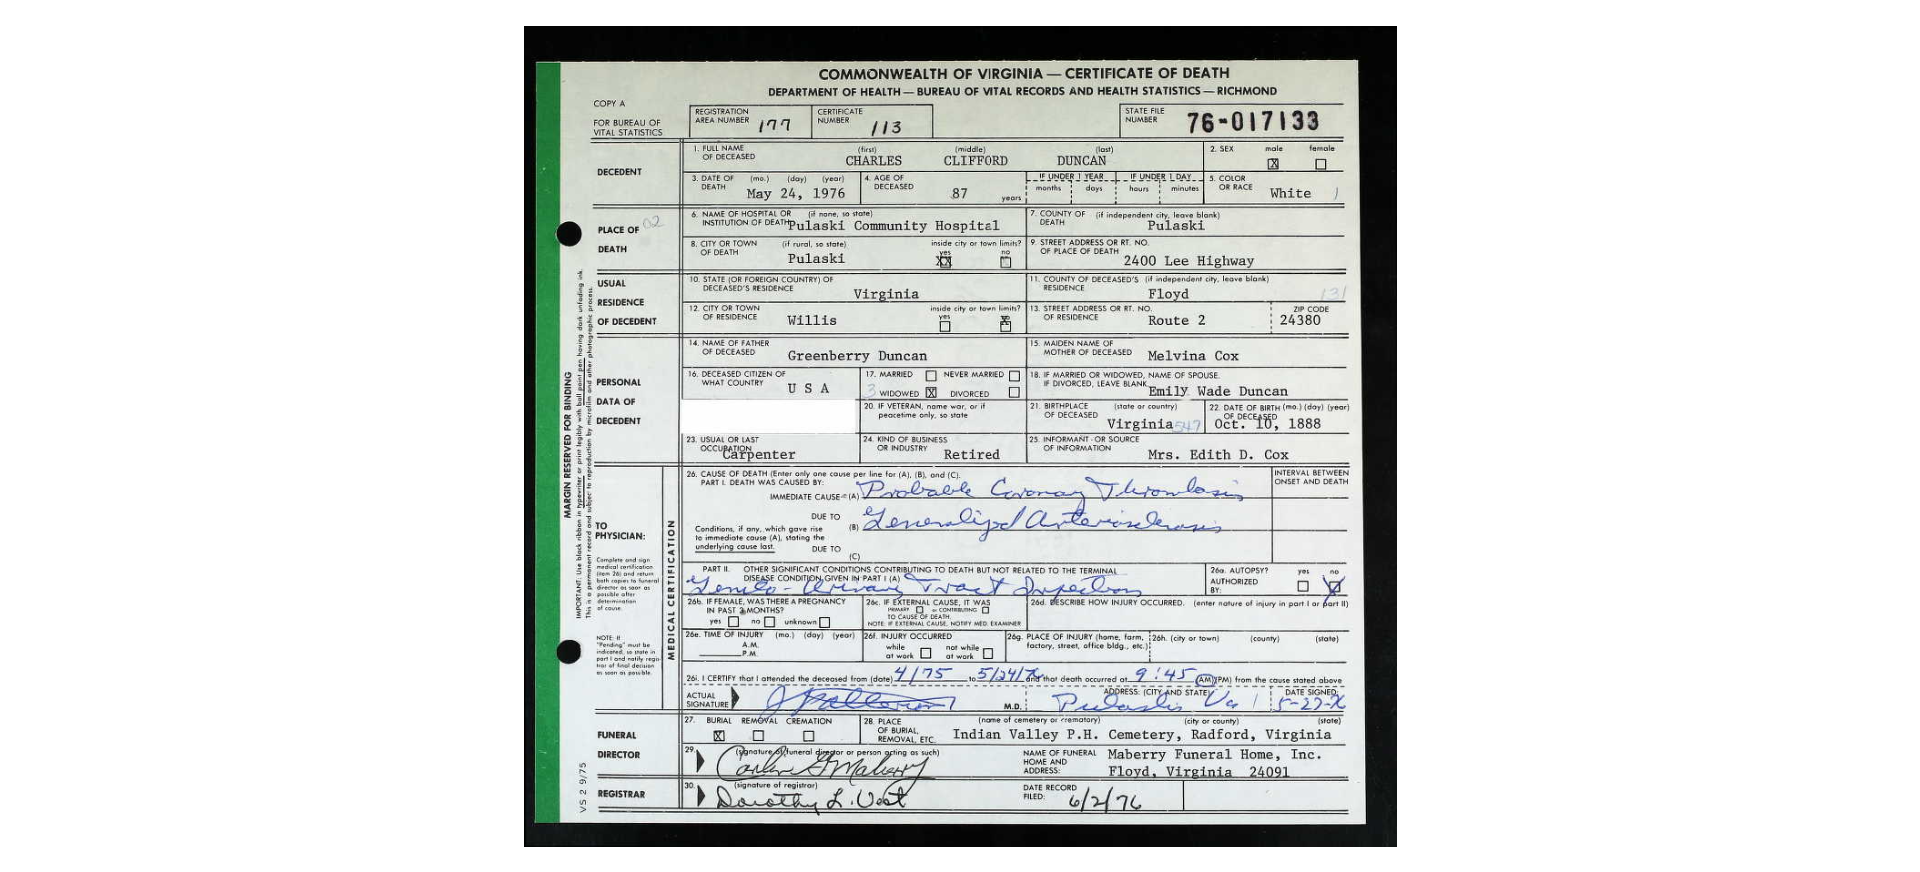 COMMONWEALTH OF VIRGINIA — CERTIFICATE OF DEATH
DEPARTMENT OF HEALTH — BUREAU OF VITAL RECORDS AND HEALTH STATISTICS — RICHMOND
COPY A
FOR BUREAU OF VITAL STATISTICS
REGISTRATION AREA NUMBER 177
CERTIFICATE NUMBER 113
STATE FILE NUMBER 76-017133
DECEDENT
1. FULL NAME OF DECEASED (first) (middle) (last)
CHARLES CLIFFORD DUNCAN
2. SEX male X female
3. DATE OF DEATH (mo.) (day) (year)
May 24, 1976
4. AGE OF DECEASED 87 years
IF UNDER 1 YEAR months days
IF UNDER 1 DAY hours minutes
5. COLOR OR RACE White 1
PLACE OF DEATH 02
6. NAME OF HOSPITAL OR INSTITUTION OF DEATH (if none, so state)
Pulaski Community Hospital
7. COUNTY OF DEATH (if independent city, leave blank)
Pulaski
8. CITY OR TOWN OF DEATH (if rural, so state)
Pulaski
inside city or town limits? yes XX no
9. STREET ADDRESS OR RT. NO. OF PLACE OF DEATH
2400 Lee Highway
USUAL RESIDENCE OF DECEDENT
10. STATE (OR FOREIGN COUNTRY) OF DECEASED'S RESIDENCE
Virginia
11. COUNTY OF DECEASED'S RESIDENCE (if independent city, leave blank)
Floyd 131
12. CITY OR TOWN OF RESIDENCE
Willis
inside city or town limits? yes no X
13. STREET ADDRESS OR RT. NO. OF RESIDENCE
Route 2
ZIP CODE 24380
PERSONAL DATA OF DECEDENT
14. NAME OF FATHER OF DECEASED
Greenberry Duncan
15. MAIDEN NAME OF MOTHER OF DECEASED
Melvina Cox
16. DECEASED CITIZEN OF WHAT COUNTRY
U S A
17. MARRIED NEVER MARRIED
3 WIDOWED X DIVORCED
18. IF MARRIED OR WIDOWED, NAME OF SPOUSE. IF DIVORCED, LEAVE BLANK
Emily Wade Duncan
20. IF VETERAN, name war, or if peacetime only, so state
21. BIRTHPLACE OF DECEASED (state or country)
Virginia 547
22. DATE OF BIRTH OF DECEASED (mo.) (day) (year)
Oct. 10, 1888
23. USUAL OR LAST OCCUPATION
Carpenter
24. KIND OF BUSINESS OR INDUSTRY
Retired
25. INFORMANT · OR SOURCE OF INFORMATION
Mrs. Edith D. Cox
MARGIN RESERVED FOR BINDING
IMPORTANT: Use black ribbon in typewriter or print legibly with ball point pen having dark unfading ink.
This is a permanent record and subject to reproduction by microfilm and other photographic process.
TO PHYSICIAN:
Complete and sign medical certification (item 26) and return both copies to funeral director as soon as possible after determination of cause.
NOTE: If "Pending" must be indicated, so state in part I and notify registrar of final decision as soon as possible.
MEDICAL CERTIFICATION
26. CAUSE OF DEATH (Enter only one cause per line for (A), (B), and (C).
PART I. DEATH WAS CAUSED BY:
INTERVAL BETWEEN ONSET AND DEATH
IMMEDIATE CAUSE (A) Probable Coronary Thrombosis
DUE TO
(B) Generalized Arteriosclerosis
Conditions, if any, which gave rise to immediate cause (A), stating the underlying cause last.
DUE TO
(C)
PART II. OTHER SIGNIFICANT CONDITIONS CONTRIBUTING TO DEATH BUT NOT RELATED TO THE TERMINAL DISEASE CONDITION GIVEN IN PART I (A)
Genito-Urinary Tract Infection
26a. AUTOPSY? yes no X
AUTHORIZED BY:
26b. IF FEMALE, WAS THERE A PREGNANCY IN PAST 3 MONTHS?
yes no unknown
26c. IF EXTERNAL CAUSE, IT WAS
PRIMARY or CONTRIBUTING
TO CAUSE OF DEATH.
NOTE: IF EXTERNAL CAUSE, NOTIFY MED. EXAMINER
26d. DESCRIBE HOW INJURY OCCURRED. (enter nature of injury in part I or part II)
26e. TIME OF INJURY (mo.) (day) (year)
A.M.
P.M.
26f. INJURY OCCURRED
while at work not while at work
26g. PLACE OF INJURY (home, farm, factory, street, office bldg., etc.)
26h. (city or town) (county) (state)
26i. I CERTIFY that I attended the deceased from (date) 4/75 to 5/24/76 and that death occurred at 9:45 (AM)(PM) from the cause stated above
ACTUAL SIGNATURE M.D.
ADDRESS: (CITY AND STATE) Pulaski Va
DATE SIGNED: 5-27-76
FUNERAL DIRECTOR
27. BURIAL REMOVAL CREMATION
X
28. PLACE OF BURIAL, REMOVAL, ETC. (name of cemetery or crematory) (city or county) (state)
Indian Valley P.H. Cemetery, Radford, Virginia
29. (signature of funeral director or person acting as such)
NAME OF FUNERAL HOME AND ADDRESS:
Maberry Funeral Home, Inc.
Floyd, Virginia 24091
REGISTRAR
30. (signature of registrar)
Dorothy L. Vest
DATE RECORD FILED: 6/2/76
VS 2 9/75